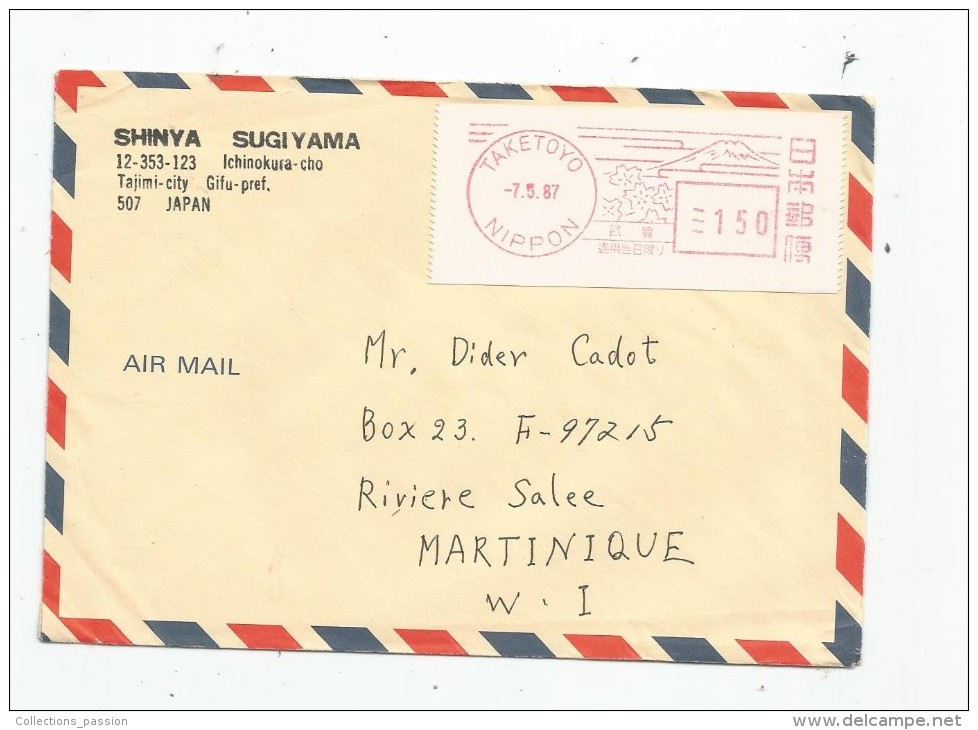 SHINYA SUGIYAMA
12-353-123 Ichinokura-cho
Tajimi-city Gifu-pref.
507 JAPAN
TAKETOYO
-7.5.87
NIPPON
武豊
適用当日限り
150
日本郵便
AIR MAIL
Mr. Dider Cadot
Box 23. F-97215
Riviere Salee
MARTINIQUE
W. I
Collections_passion
www.delcampe.net